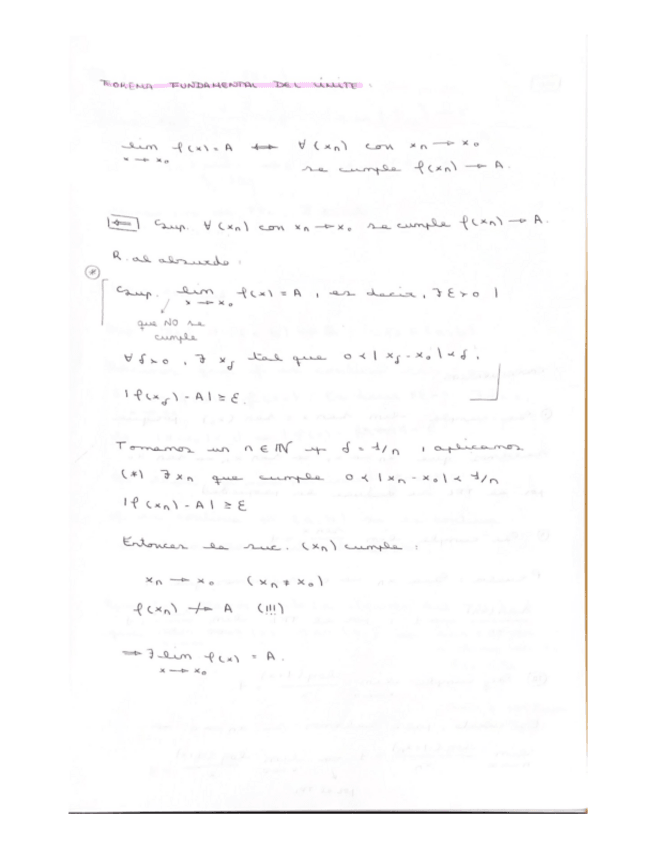 TEOREMA FUNDAMENTAL DEL LÍMITE:
lim f(x) = A ⟷ ∀(xn) con xn → x₀
x → x₀
se cumple f(xn) → A.
⇐ Sup. ∀(xn) con xn → x₀ se cumple f(xn) → A.
R. al absurdo:
(*)
Sup. lim f(x) = A, es decir, ∃ε>0 |
x → x₀
que NO se
cumple
∀δ>0, ∃ xδ tal que 0<|xδ-x₀|<δ,
|f(xδ)-A| ≥ ε.
Tomamos un n∈ℕ y δ = 1/n, aplicamos
(*) ∃xn que cumple 0<|xn-x₀|<1/n
|f(xn)-A| ≥ ε
Entonces la suc. (xn) cumple:
xn → x₀ (xn ≠ x₀)
f(xn) ↛ A (!!!)
⟹ ∃ lim f(x) = A.
x → x₀